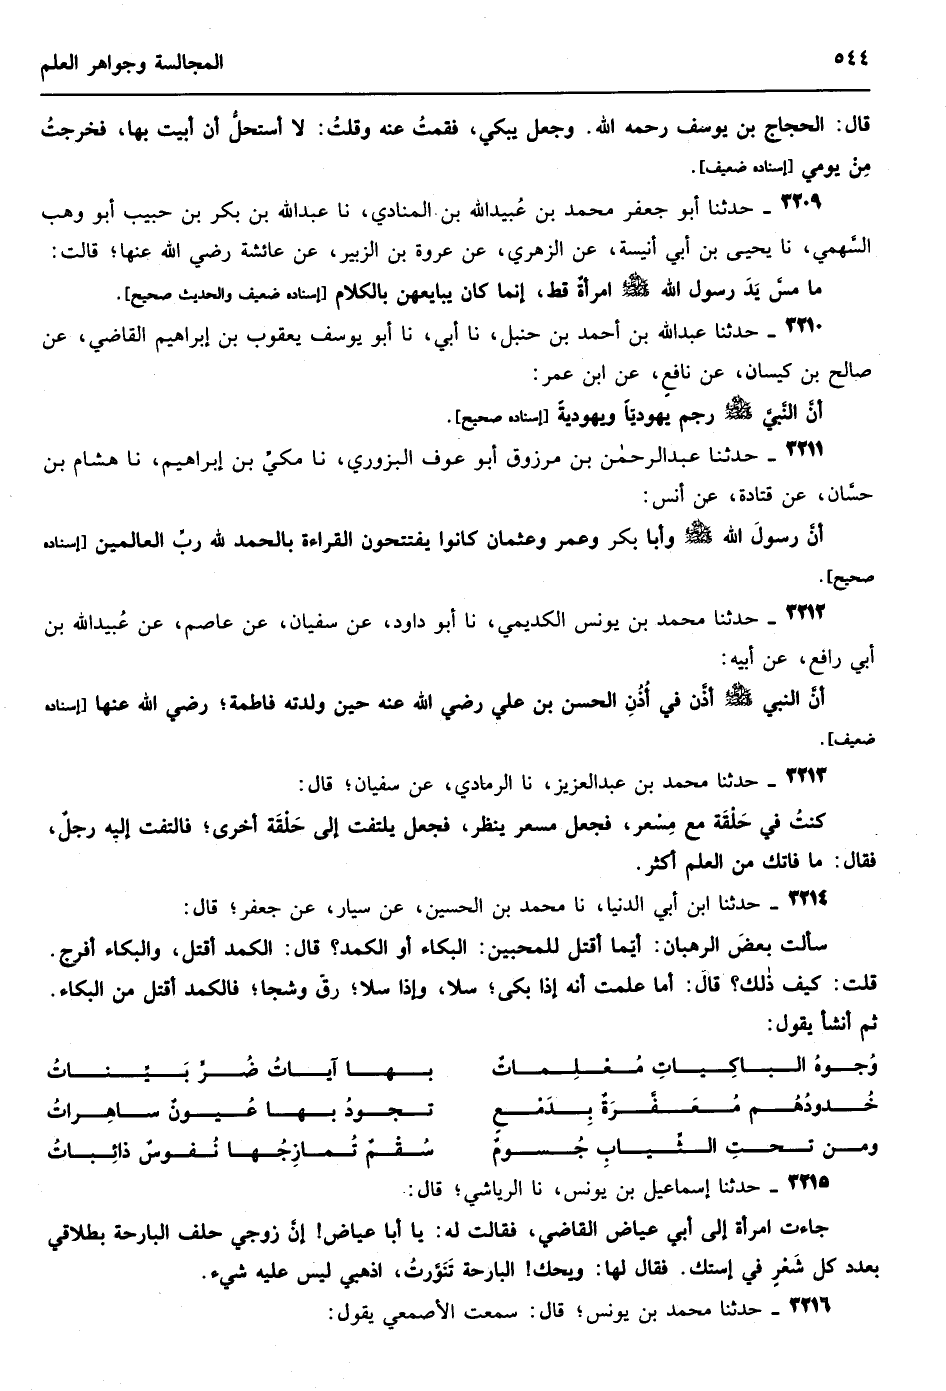 ٥٤٤ المجالسة وجواهر العلم
قال: الحجاج بن يوسف رحمه الله. وجعل يبكي، فقمتُ عنه وقلتُ: لا أستحلُّ أن أبيت بها، فخرجتُ
مِنْ يومي [إسناده ضعيف].
٣٢٠٩ ـ حدثنا أبو جعفر محمد بن عُبيدالله بن المنادي، نا عبدالله بن بكر بن حبيب أبو وهب
السَّهمي، نا يحيى بن أبي أنيسة، عن الزهري، عن عروة بن الزبير، عن عائشة رضي الله عنها؛ قالت:
ما مسَّ يَدَ رسول الله ﷺ امرأةٌ قط، إنما كان يبايعهن بالكلام [إسناده ضعيف والحديث صحيح].
٣٢١٠ ـ حدثنا عبدالله بن أحمد بن حنبل، نا أبي، نا أبو يوسف يعقوب بن إبراهيم القاضي، عن
صالح بن كيسان، عن نافعٍ، عن ابن عمر:
أنَّ النَّبيَّ ﷺ رجم يهوديّاً ويهوديةً [إسناده صحيح].
٣٢١١ ـ حدثنا عبدالرحمٰن بن مرزوق أبو عوف البزوري، نا مكيّ بن إبراهيم، نا هشام بن
حسَّان، عن قتادة، عن أنس:
أنَّ رسولَ الله ﷺ وأبا بكر وعمر وعثمان كانوا يفتتحون القراءة بالحمد لله ربِّ العالمين [إسناده
صحيح].
٣٢١٢ ـ حدثنا محمد بن يونس الكديمي، نا أبو داود، عن سفيان، عن عاصم، عن عُبيدالله بن
أبي رافع، عن أبيه:
أنَّ النبي ﷺ أذَّن في أُذُنِ الحسن بن علي رضي الله عنه حين ولدته فاطمة؛ رضي الله عنها [إسناده
ضعيف].
٣٢١٣ ـ حدثنا محمد بن عبدالعزيز، نا الرمادي، عن سفيان؛ قال:
كنتُ في حَلْقَة مع مِسْعر، فجعل مسعر ينظر، فجعل يلتفت إلى حَلْقَة أخرى؛ فالتفت إليه رجلٌ،
فقال: ما فاتك من العلم أكثر.
٣٢١٤ ـ حدثنا ابن أبي الدنيا، نا محمد بن الحسين، عن سيار، عن جعفر؛ قال:
سألت بعضَ الرهبان: أيّما أقتل للمحبين: البكاء أو الكمد؟ قال: الكمد أقتل، والبكاء أفرج.
قلت: كيف ذٰلك؟ قالَ: أما علمت أنه إذا بكى؛ سلا، وإذا سلا؛ رقّ وشجا؛ فالكمد أقتل من البكاء.
ثم أنشأ يقول:
وُجوهُ الباكِياتِ مُعْلِماتٌ بها آياتُ ضُرٍّ بَيِّناتُ
خُدودُهُم مُعَفَّرَةٌ بِدَمْعٍ تجودُ بها عُيونٌ ساهِراتُ
ومن تحتِ الثِّيابِ جُسومٌ سُقْمٌ تُمازِجُها نُفوسٌ ذائِباتُ
٣٢١٥ ـ حدثنا إسماعيل بن يونس، نا الرياشي؛ قال:
جاءت امرأة إلى أبي عياض القاضي، فقالت له: يا أبا عياض! إنَّ زوجي حلف البارحة بطلاقي
بعدد كل شَعْرٍ في إستك. فقال لها: ويحك! البارحة تَنَوَّرتُ، اذهبي ليس عليه شيء.
٣٢١٦ ـ حدثنا محمد بن يونس؛ قال: سمعت الأصمعي يقول: